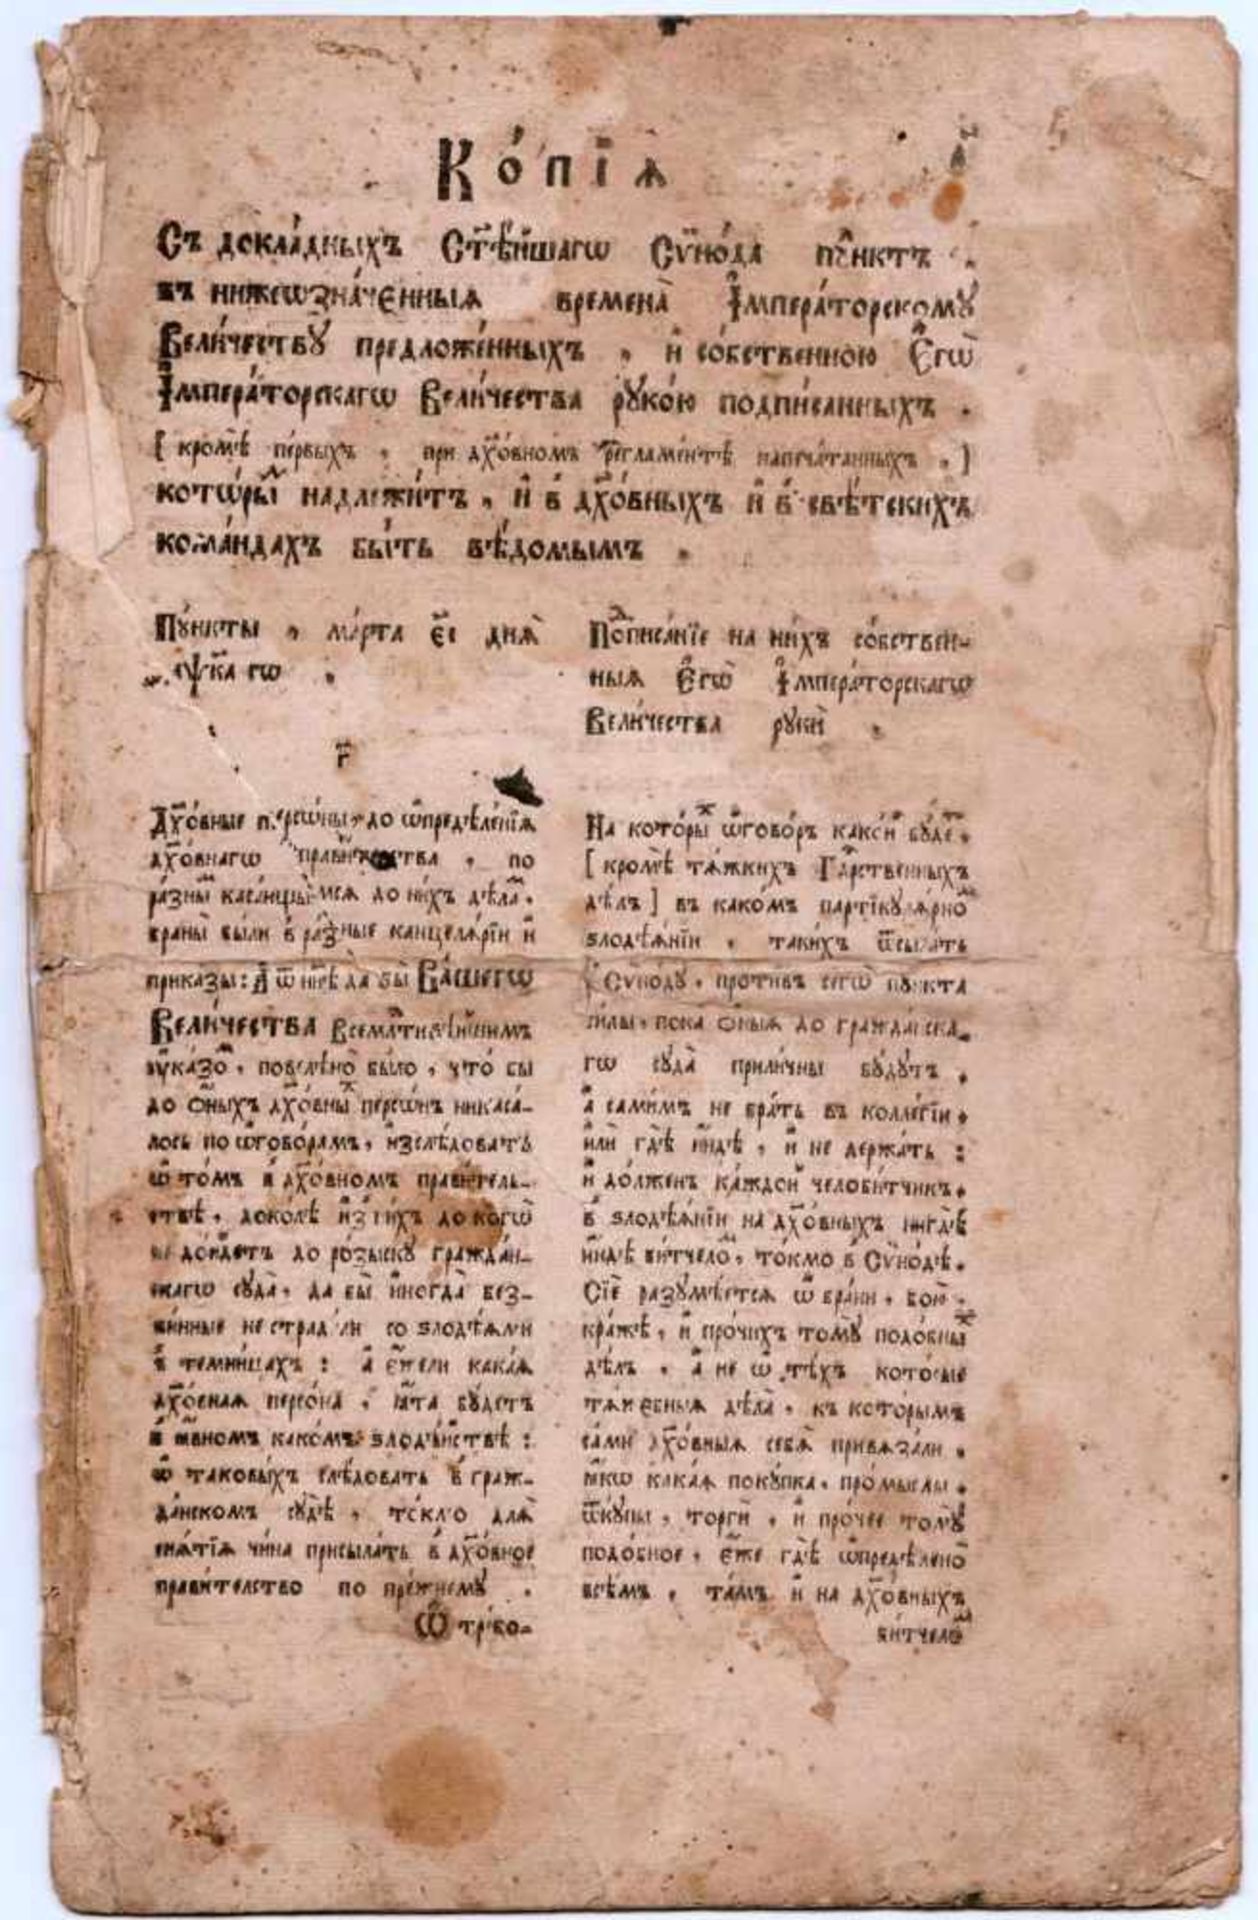 Ко́пїѧ
Съ докла́дныхъ Ст҃ѣ́йшагѡ Сѷно́да пꙋ́нктъ
въ нижеѡзна́ченныѧ времена̀ І҆мпера́торскомꙋ
Вели́чествꙋ̀ предложе́нныхъ , и҆ со́бственною Е҆гѡ̀
І҆мпера́торскагѡ Вели́чества рꙋко́ю подпи́санныхъ .
[ кромѣ̀ пе́рвыхъ , при дх҃о́вномъ регламе́нтѣ напеча́танныхъ , ]
котѡ́ры надлежи́тъ , и҆ в̾ дх҃о́вныхъ и҆ в̾ свѣ́тскихъ
кома́ндахъ бы́ть вѣ́домымъ .
Пꙋ́нкты , ма́рта є҃і днѧ̀
҂аѱк҃а гѡ .
г҃
Дх҃о́вные персѡ́ны, до ѡ҆предѣле́нїѧ
дх҃о́внагѡ прави́тельства , по
ра́зны каса́ющымсѧ до ни́хъ дѣла́,
браны̀ бы́ли в̾ ра́зные канцелѧ́рїи и҆
прика́зы: А҆ ѿ нн҃ѣ да бы̀ Ва́шегѡ
Вели́чества Всемлⷭ҇тивѣ́йшимъ
ᲂу҆ка́зо , повелѣно̀ бы́ло , что́ бы
до ѻ҆́ныхъ дх҃о́вны персѡ́нъ никаса́-
лось по ѡ҆гово́рамъ, и҆зслѣ́довать
ѡ҆ то́мъ в̾ дх҃о́вномъ прави́тель-
ствѣ , доко́лѣ и҆з̾ ни́хъ до когѡ̀
не до́йдетъ до ро́зыскꙋ гражда́н-
скагѡ сꙋда̀, да бы̀ и҆ногда̀ без-
ви́нные не страда́ли со ѕлодѣ́ѧми
в̾ темни́цахъ : а҆ є҆́жели кака́ѧ
дх҃о́внаѧ персо́на , ꙗ҆́та бꙋ́детъ
в̾ ꙗ҆́вномъ како́мъ ѕлодѣ́йствѣ :
ѡ҆ таковы́хъ слѣ́довать в̾ граж-
да́нскомъ сꙋдѣ̀ , то́кмо длѧ̀
снѧ́тїѧ чи́на присыла́ть в̾ дх҃о́вное
прави́тельство по пре́жнемꙋ .
Ѿ тре́бо-
Пописа́нїе на ни́хъ со́бствен-
ныѧ Е҆гѡ̀ І҆мпера́торскагѡ
Вели́чества рꙋкѝ .
На кото́ры ѡ҆гово́ръ какѡ́й бꙋ́де ,
[ кромѣ̀ тѧ́жкихъ Гдⷭ҇рственныхъ
дѣ́лъ ] въ како́мъ партїкꙋлѧ́рно
ѕлодѣѧ́нїи , таки́хъ ѿсыла́ть
к̾ Сѷно́дꙋ , про́тивъ сегѡ̀ пꙋ́нкта
си́лы, пока ѻ҆́ныѧ до гражда́нска-
гѡ сꙋда̀ прили́чны бꙋ́дꙋтъ ,
а҆ сами́мъ не бра́ть въ колле́гїи,
и҆лѝ гдѣ̀ и҆́ндѣ , и҆ не держа́ть :
и҆ до́лженъ ка́ждой челоби́тчикъ,
в̾ ѕлодѣѧ́нїи на дх҃о́вныхъ нигдѣ̀
и҆́ндѣ би́тчело , то́кмо в̾ Сѷно́дѣ.
Сїѐ разꙋмѣ́етсѧ ѡ҆ бра́ни , бою̀ ,
кра́жѣ, и҆ про́чихъ томꙋ̀ подо́бны
дѣ́лъ , а҆ не ѡ҆ тѣ́хъ которые
тѧ́жебныѧ дѣла̀, къ кото́рымъ
са́ми дх҃о́вныѧ себѧ̀ привѧза́ли ,
ꙗ҆́кѡ кака́ѧ покꙋ́пка, про́мыслы ,
ѿкꙋпы̀ , торгѝ , и҆ про́чее томꙋ̀
подо́бное , є҆́же гдѣ̀ ѡ҆предѣлено̀
всѣ́мъ , та́мъ и҆ на дх҃о́вныхъ
би́тчело